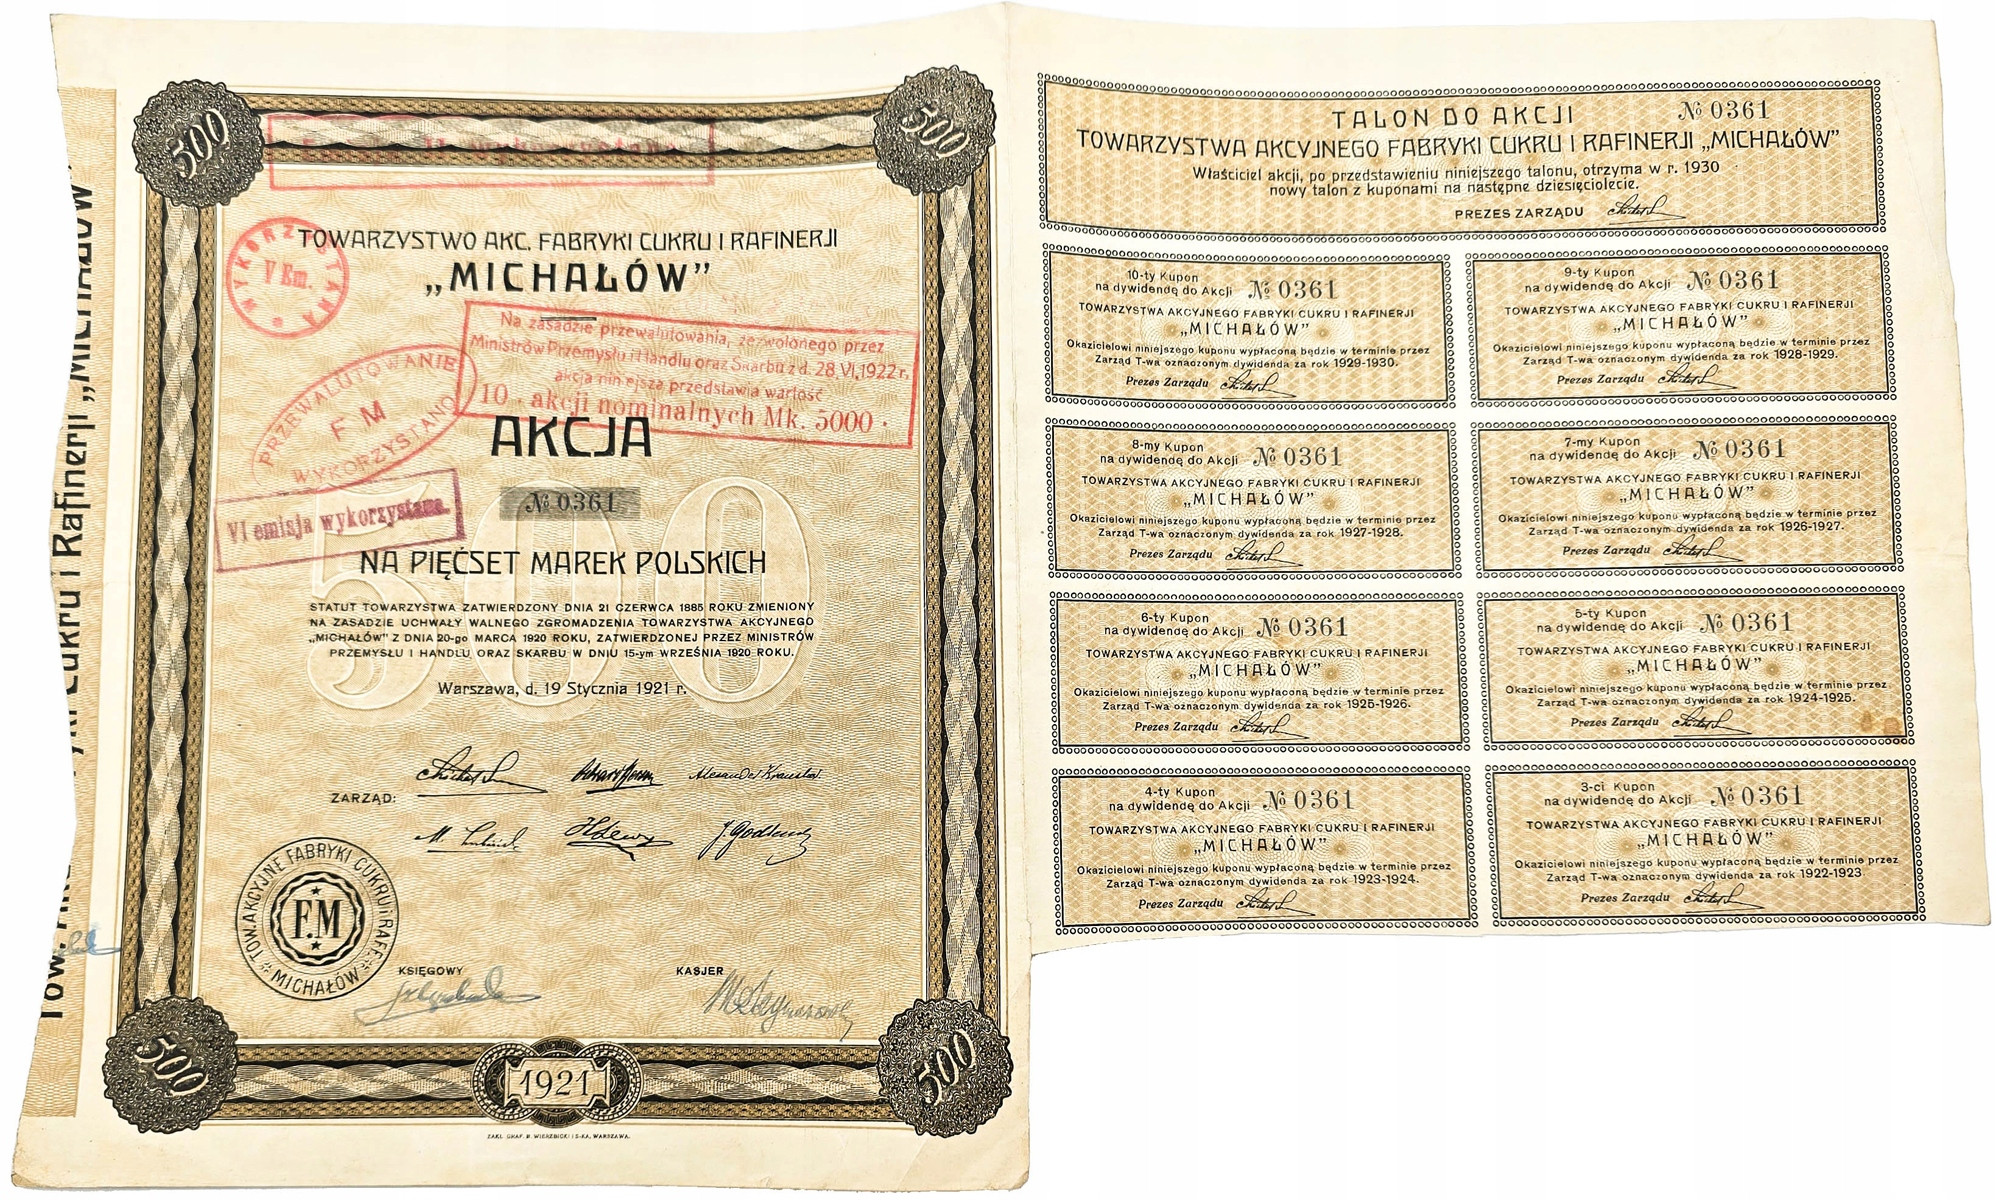 500
500
Emisja II wykorzystana
WYKORZYSTANA
V Em.
TOWARZYSTWO AKC. FABRYKI CUKRU I RAFINERJI
„MICHAŁÓW”
Na zasadzie przewalutowania, zezwolonego przez
Ministrów Przemysłu i Handlu oraz Skarbu z d. 28 VI, 1922 r.
akcja niniejsza przedstawia wartość
10 . akcji nominalnych Mk. 5000 .
PRZEWALUTOWANIE
F M
WYKORZYSTANO
AKCJA
№ 0361
VI emisja wykorzystana.
500
NA PIĘĆSET MAREK POLSKICH
STATUT TOWARZYSTWA ZATWIERDZONY DNIA 21 CZERWCA 1885 ROKU ZMIENIONY
NA ZASADZIE UCHWAŁY WALNEGO ZGROMADZENIA TOWARZYSTWA AKCYJNEGO
„MICHAŁÓW” Z DNIA 20-go MARCA 1920 ROKU, ZATWIERDZONEJ PRZEZ MINISTRÓW
PRZEMYSŁU I HANDLU ORAZ SKARBU W DNIU 15-ym WRZEŚNIA 1920 ROKU.
Warszawa, d. 19 Stycznia 1921 r.
ZARZĄD:
TOW. AKCYJNE FABRYKI CUKRU I RAF.
F.M
MICHAŁÓW
KSIĘGOWY
KASJER
500
1921
500
ZAKŁ. GRAF. B. WIERZBICKI I S-KA, WARSZAWA.
Cukru i Rafinerji „MICHAŁÓW”
TALON DO AKCJI № 0361
TOWARZYSTWA AKCYJNEGO FABRYKI CUKRU I RAFINERJI „MICHAŁÓW”
Właściciel akcji, po przedstawieniu niniejszego talonu, otrzyma w r. 1930
nowy talon z kuponami na następne dziesięciolecie.
PREZES ZARZĄDU
10-ty Kupon
na dywidendę do Akcji № 0361
TOWARZYSTWA AKCYJNEGO FABRYKI CUKRU I RAFINERJI
„MICHAŁÓW”
Okazicielowi niniejszego kuponu wypłaconą będzie w terminie przez
Zarząd T-wa oznaczonym dywidenda za rok 1929-1930.
Prezes Zarządu
9-ty Kupon
na dywidendę do Akcji № 0361
TOWARZYSTWA AKCYJNEGO FABRYKI CUKRU I RAFINERJI
„MICHAŁÓW”
Okazicielowi niniejszego kuponu wypłaconą będzie w terminie przez
Zarząd T-wa oznaczonym dywidenda za rok 1928-1929.
Prezes Zarządu
8-my Kupon
na dywidendę do Akcji № 0361
TOWARZYSTWA AKCYJNEGO FABRYKI CUKRU I RAFINERJI
„MICHAŁÓW”
Okazicielowi niniejszego kuponu wypłaconą będzie w terminie przez
Zarząd T-wa oznaczonym dywidenda za rok 1927-1928.
Prezes Zarządu
7-my Kupon
na dywidendę do Akcji № 0361
TOWARZYSTWA AKCYJNEGO FABRYKI CUKRU I RAFINERJI
„MICHAŁÓW”
Okazicielowi niniejszego kuponu wypłaconą będzie w terminie przez
Zarząd T-wa oznaczonym dywidenda za rok 1926-1927.
Prezes Zarządu
6-ty Kupon
na dywidendę do Akcji № 0361
TOWARZYSTWA AKCYJNEGO FABRYKI CUKRU I RAFINERJI
„MICHAŁÓW”
Okazicielowi niniejszego kuponu wypłaconą będzie w terminie przez
Zarząd T-wa oznaczonym dywidenda za rok 1925-1926.
Prezes Zarządu
5-ty Kupon
na dywidendę do Akcji № 0361
TOWARZYSTWA AKCYJNEGO FABRYKI CUKRU I RAFINERJI
„MICHAŁÓW”
Okazicielowi niniejszego kuponu wypłaconą będzie w terminie przez
Zarząd T-wa oznaczonym dywidenda za rok 1924-1925.
Prezes Zarządu
4-ty Kupon
na dywidendę do Akcji № 0361
TOWARZYSTWA AKCYJNEGO FABRYKI CUKRU I RAFINERJI
„MICHAŁÓW”
Okazicielowi niniejszego kuponu wypłaconą będzie w terminie przez
Zarząd T-wa oznaczonym dywidenda za rok 1923-1924.
Prezes Zarządu
3-ci Kupon
na dywidendę do Akcji № 0361
TOWARZYSTWA AKCYJNEGO FABRYKI CUKRU I RAFINERJI
„MICHAŁÓW”
Okazicielowi niniejszego kuponu wypłaconą będzie w terminie przez
Zarząd T-wa oznaczonym dywidenda za rok 1922-1923.
Prezes Zarządu